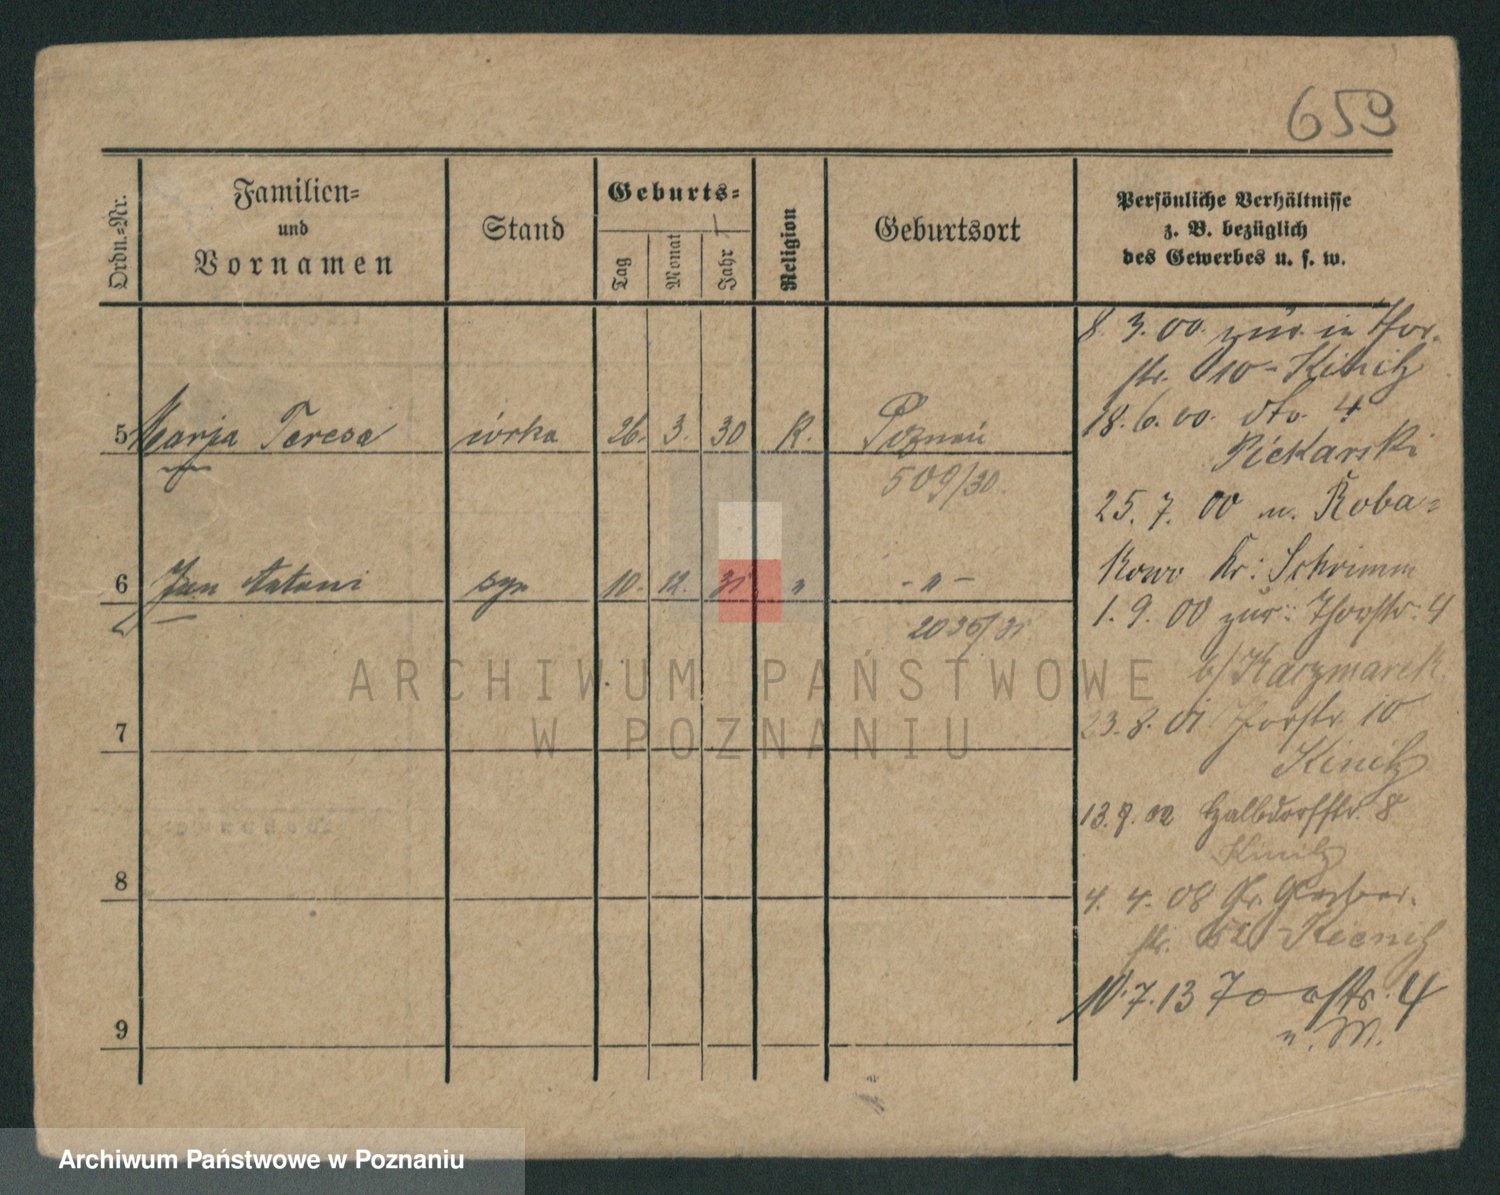 659
Ordn.-Nr.
Familien-
und
Vornamen
Stand
Geburts-
Tag
Monat
Jahr
Religion
Geburtsort
Persönliche Verhältnisse
z. B. bezüglich
des Gewerbes u. s. w.
8. 3. 00. zur. in Thor-
str. 10 - Kinitz
5 Marja Teresa córka 26. 3. 30 R. Poznań
18. 6. 00. dto. 4
Piekarski
509/30.
25. 7. 00 n. Roba-
kowo Kr: Schrimm
6 Jan Antoni syn 10. 12. 31 " - " -
1. 9. 00 zur: Thorstr. 4
2036/31
b/ Kaczmarek
ARCHIWUM PAŃSTWOWE
W POZNANIU
7
23. 8. 01 Thorstr 10
Kinitz
13. 9. 02 Halbdorfstr. 8
Kinitz
8
4. 4. 08 Gr. Gerber-
str. Kienitz
10. 7. 13 Torstr. 4
9
v. M.
Archiwum Państwowe w Poznaniu